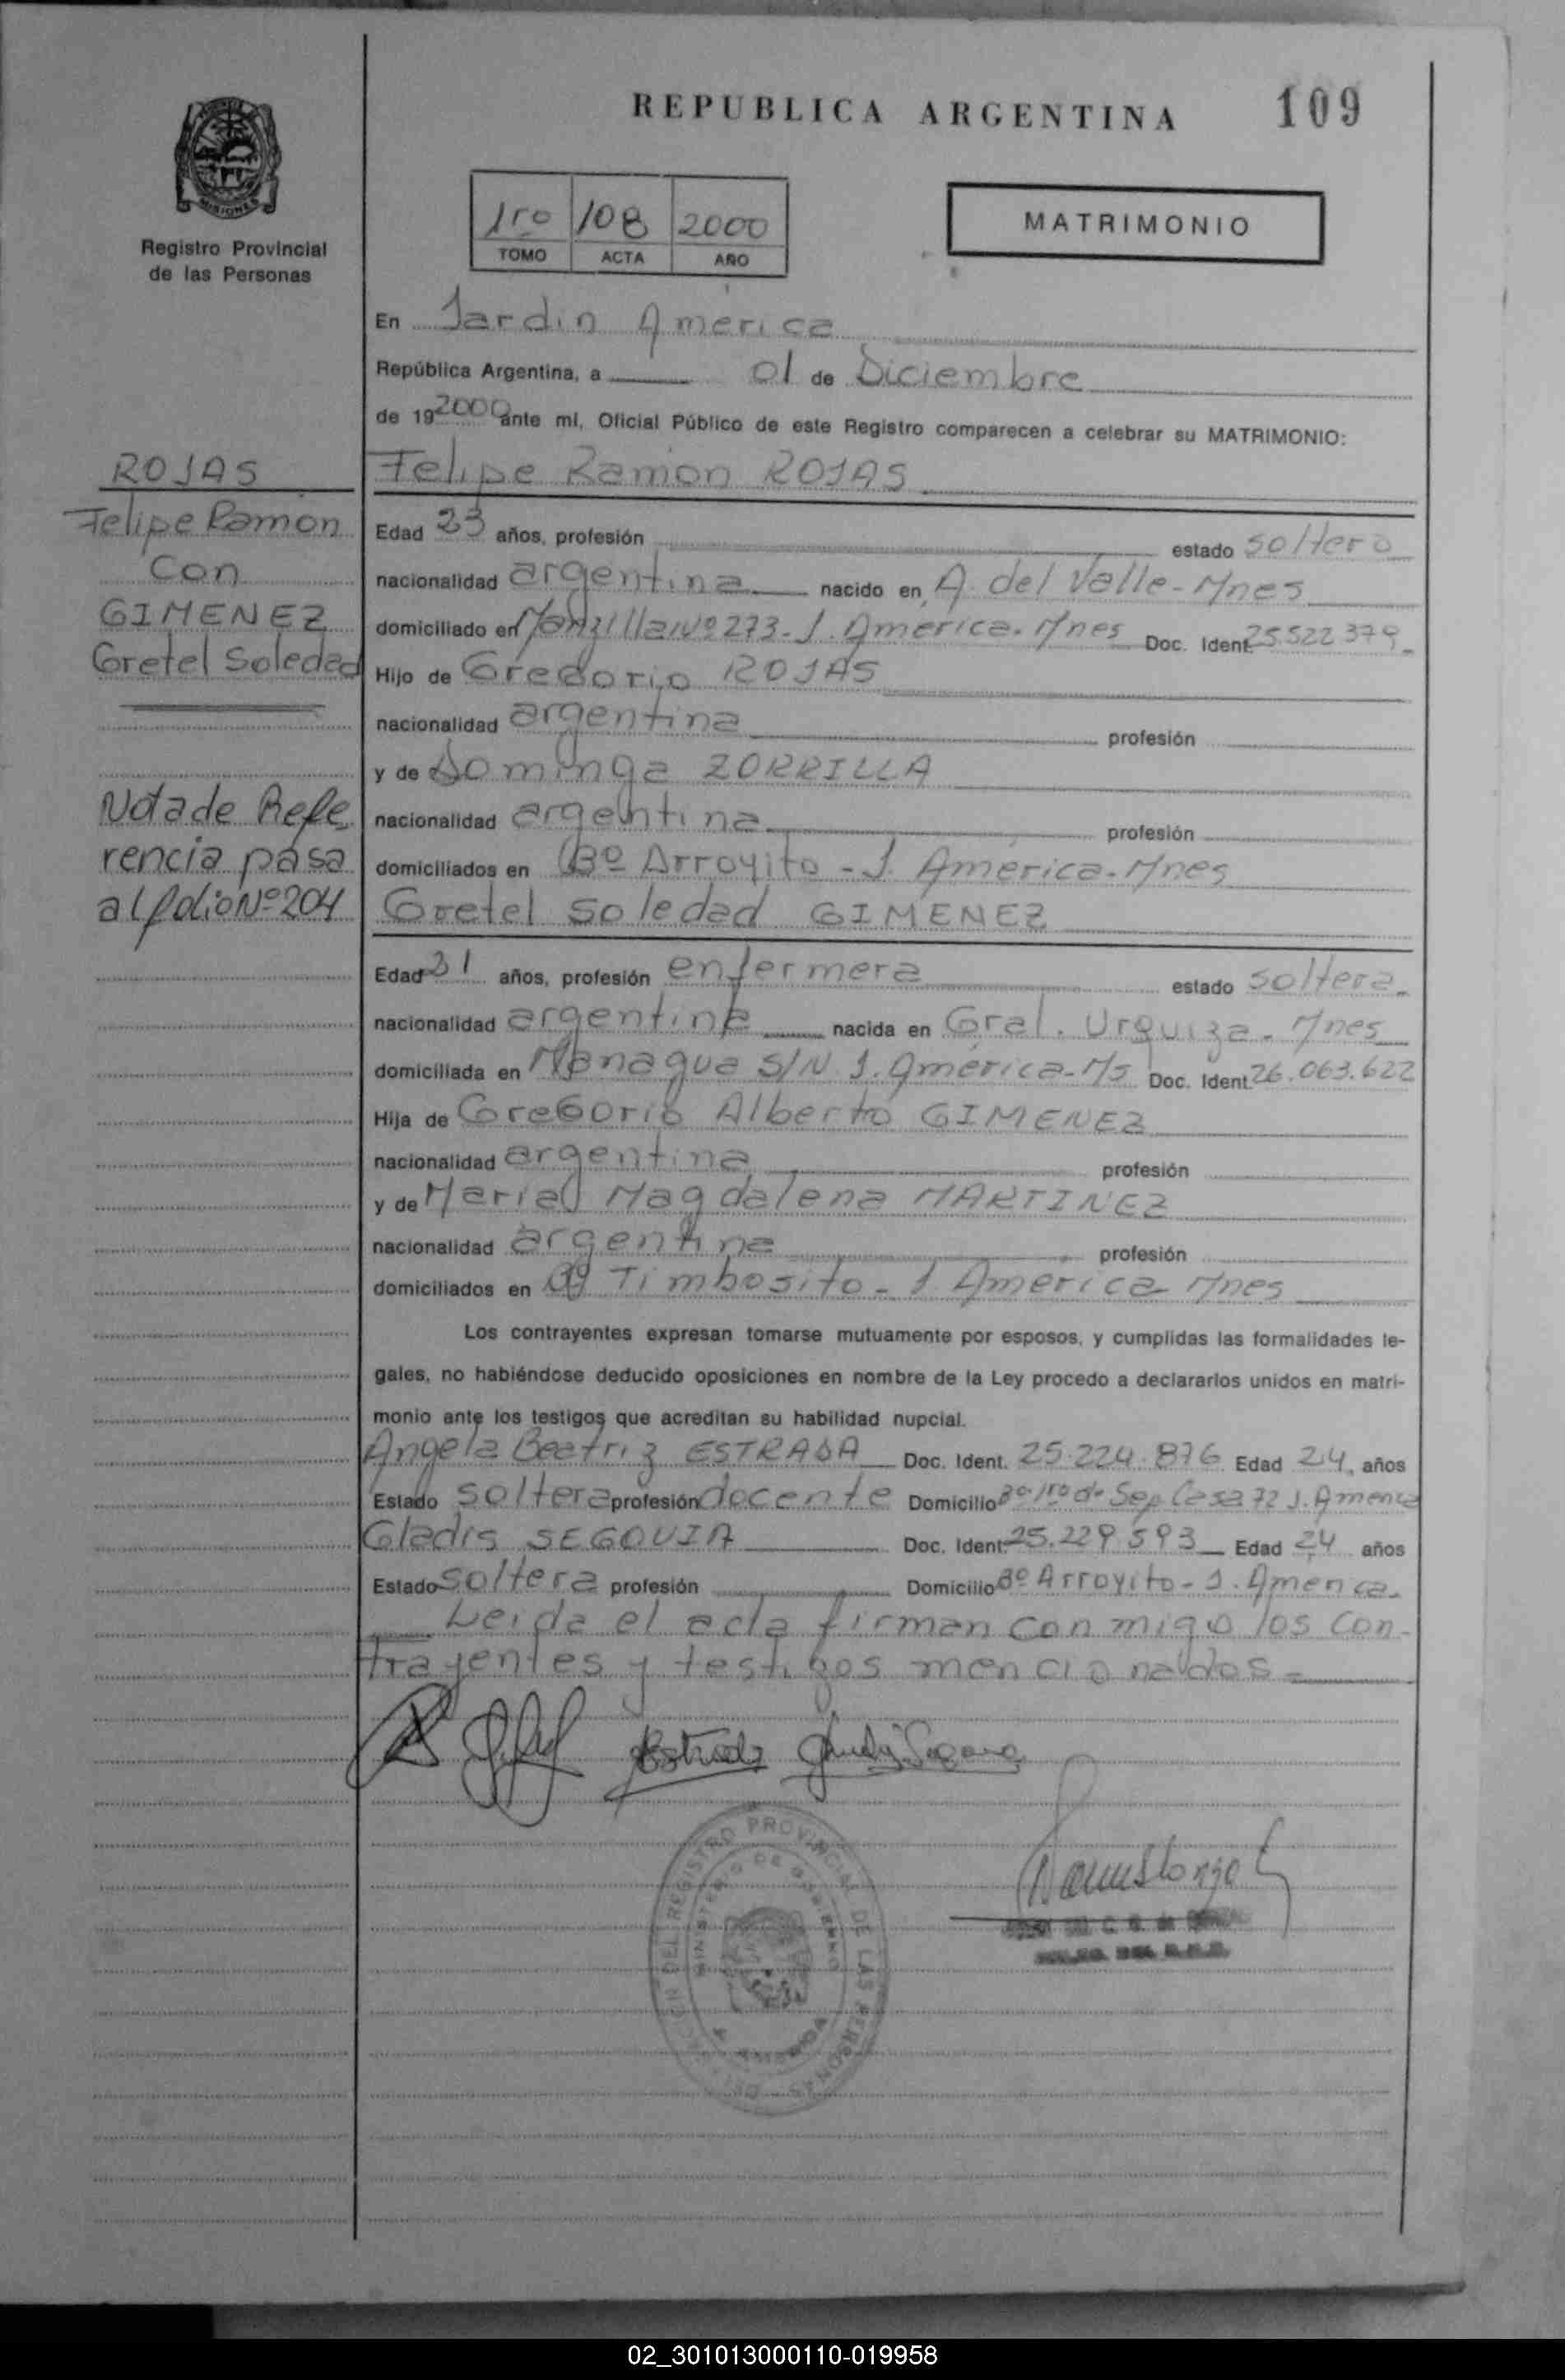 REPUBLICA ARGENTINA 109
MISIONES
Registro Provincial
de las Personas
1ro 108 2000
TOMO ACTA AÑO
MATRIMONIO
En Jardin America
República Argentina, a 01 de Diciembre
de 19 2000 ante mí, Oficial Público de este Registro comparecen a celebrar su MATRIMONIO:
ROJAS
Felipe Ramon
Con
GIMENEZ
Gretel Soledad
Nota de Refe
rencia pasa
al folio Nº 204
Felipe Ramon ROJAS
Edad 23 años, profesión estado soltero
nacionalidad argentina nacido en A. del Valle - Mnes
domiciliado en Nº 273 - J. America - Mnes Doc. Ident. 25.522.379
Hijo de Gregorio ROJAS
nacionalidad argentina profesión
y de Dominga ZORRILLA
nacionalidad argentina profesión
domiciliados en Bº Arroyito - J. America - Mnes
Gretel Soledad GIMENEZ
Edad 31 años, profesión enfermera estado soltera
nacionalidad argentina nacida en Gral. Urquiza - Mnes
domiciliada en Managua S/N J. América - M/s Doc. Ident. 26.063.622
Hija de Gregorio Alberto GIMENEZ
nacionalidad argentina profesión
y de Maria Magdalena MARTINEZ
nacionalidad argentina profesión
domiciliados en Timbosito - J. America - Mnes
Los contrayentes expresan tomarse mutuamente por esposos, y cumplidas las formalidades le-
gales, no habiéndose deducido oposiciones en nombre de la Ley procedo a declararlos unidos en matri-
monio ante los testigos que acreditan su habilidad nupcial.
Angela Beatriz ESTRADA Doc. Ident. 25.224.876 Edad 24 años
Estado soltera profesión docente Domicilio Bº 1ro de Sep Casa 72 J. America
Gladis SEGOVIA Doc. Ident. 25.229.593 Edad 24 años
Estado soltera profesión Domicilio Bº Arroyito - J. America
Leida el acta firman con migo los con-
trayentes y testigos mencionados =
DEL REGISTRO PROVINCIAL DE LAS PERSONAS
MINISTERIO DE GOBIERNO
02_301013000110-019958